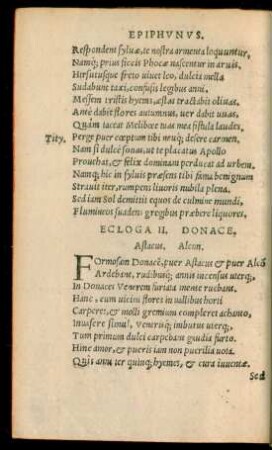 EPIPHVNVS.
Respondent syluæ, te nostra armenta loquuntur,
Namq; prius siccis Phocæ nascentur in aruis,
Hirsutusque freto uiuet leo, dulcia mella
Sudabunt taxi, confusis legibus anni.
Messem tristis hyems, æstas tractabit oliuas,
Ante dabit flores autumnus, uer dabit uuas,
Quàm taceat Melibœe tuas mea fistula laudes.
Tity. Perge puer cœptum tibi neu q; desere carmen.
Nam si dulce sonas, ut te placatus Apollo
Prouehat, & felix dominam perducat ad urbem.
Namq; hic in syluis præsens tibi fama benignum
Strauit iter, rumpens liuoris nubila plena.
Sed iam Sol demittit equos de culmine mundi,
Flumineos suadens gregibus præbere liquores.
ECLOGA II. DONACE,
Astacus. Alcon.
FOrmosam Donacē, puer Astacus & puer Alcō
Ardebant, rudibusq; annis incensus uterq;,
In Donaces Venerem furiata mente ruebant.
Hanc, cum uicini flores in uallibus horti
Carperet, & molli gremium compleret achanto,
Inuasere simul, venerisq; imbutus uterq;,
Tum primum dulci carpebant gaudia furto.
Hinc amor, & pueris iam non puerilia uota.
Quis anni ter quinq; hyemes, & cura iuuentæ.
Sed